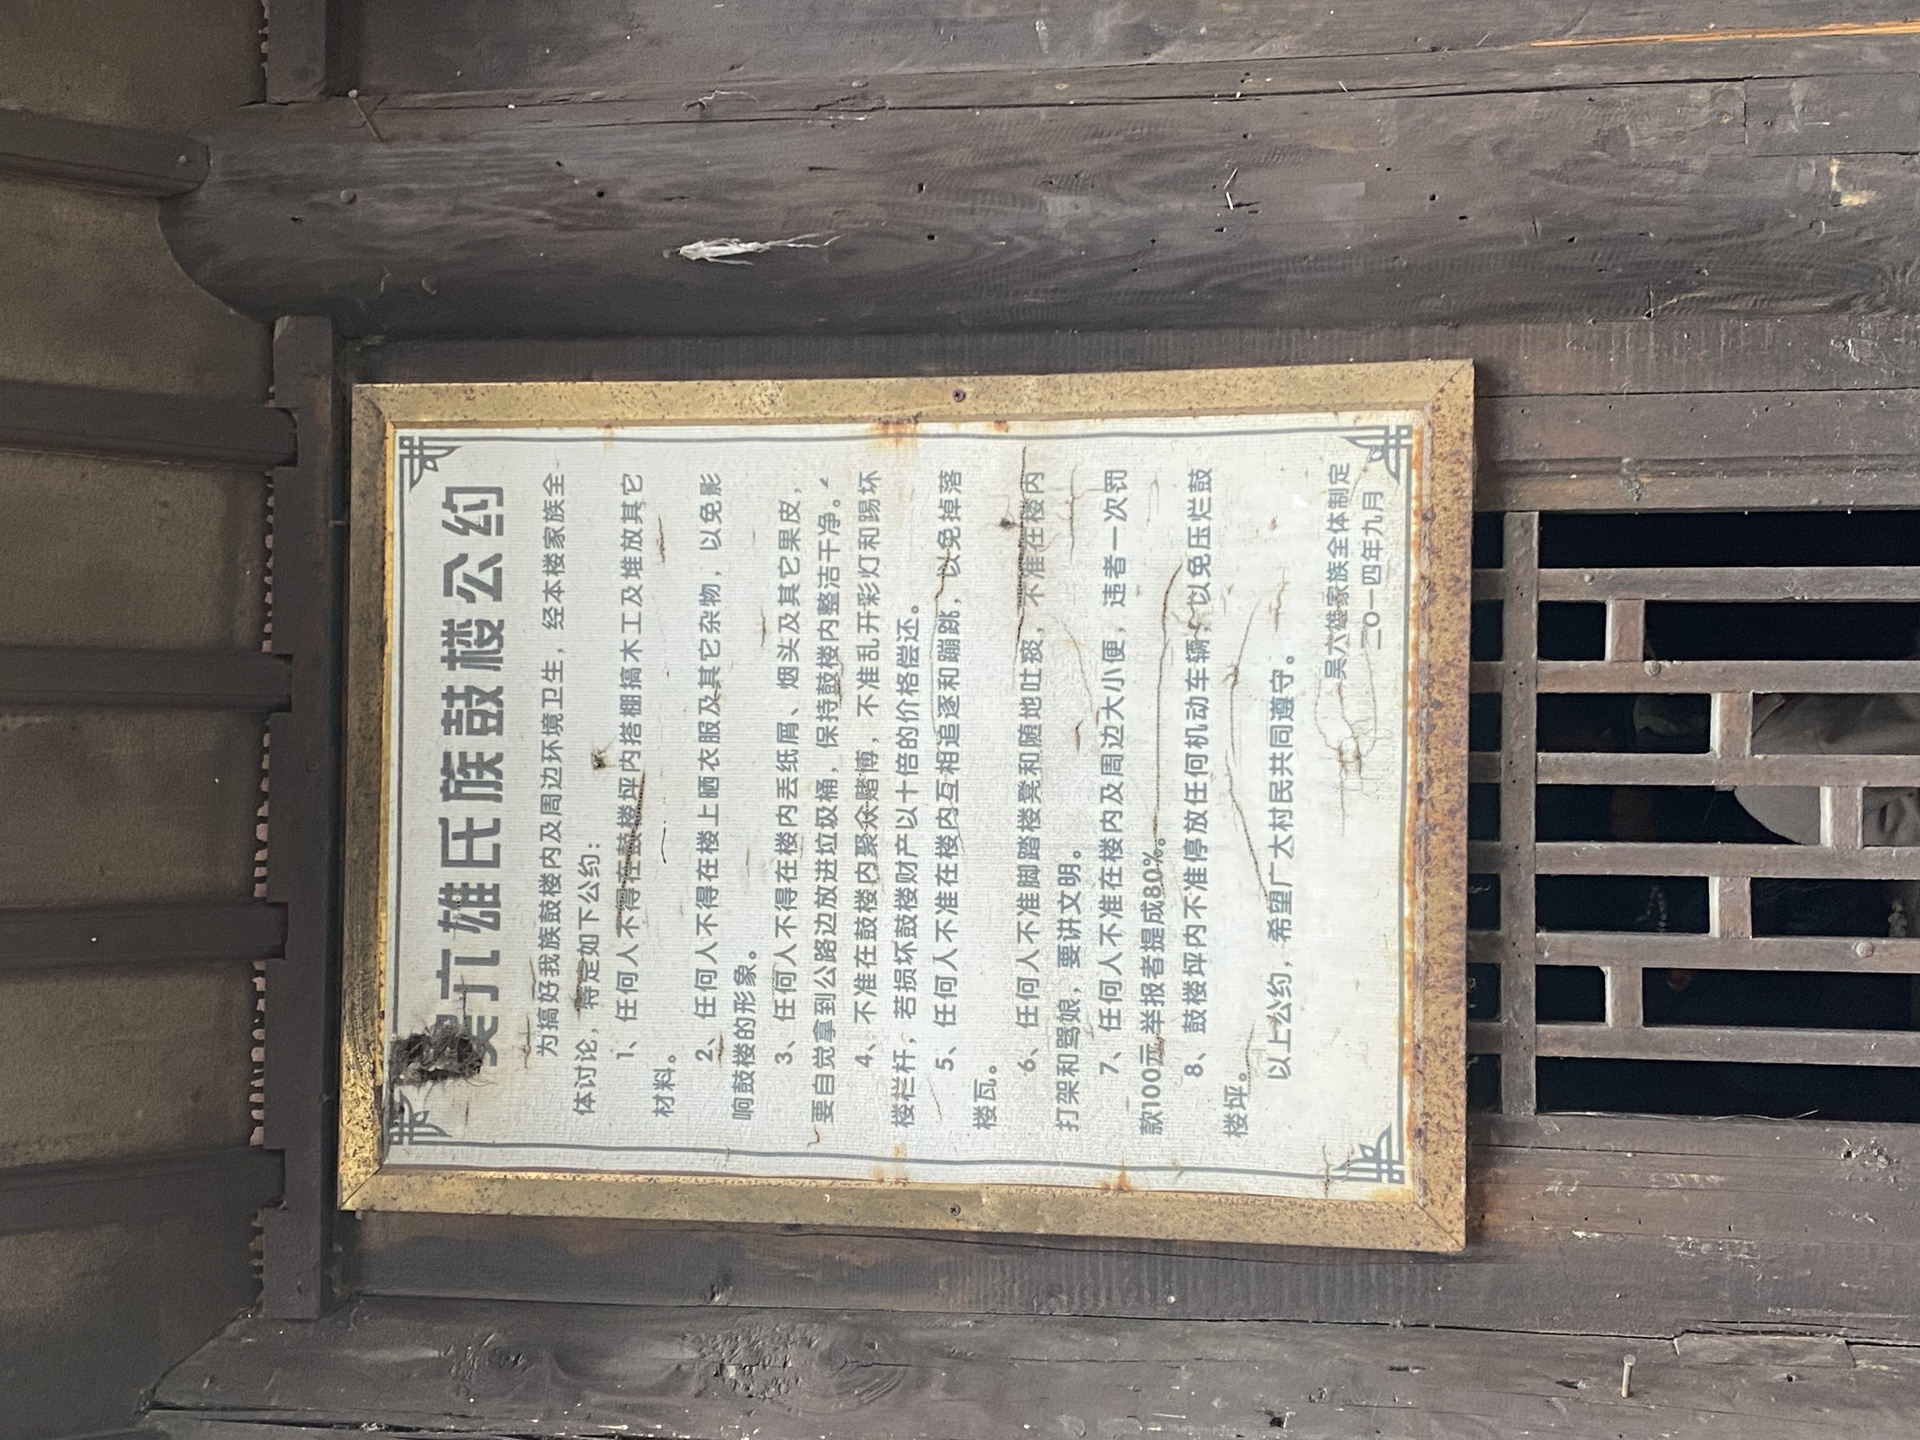 吴六雄氏族鼓楼公约
为搞好我族鼓楼内及周边环境卫生，经本楼家族全
体讨论，特定如下公约：
1、任何人不得在鼓楼坪内搭棚搞木工及堆放其它
材料。
2、任何人不得在楼上晒衣服及其它杂物，以免影
响鼓楼的形象。
3、任何人不得在楼内丢纸屑、烟头及其它果皮，
要自觉拿到公路边放进垃圾桶，保持鼓楼内整洁干净。
4、不准在鼓楼内聚众赌博，不准乱开彩灯和踢坏
楼栏杆，若损坏鼓楼财产以十倍的价格偿还。
5、任何人不准在楼内互相追逐和蹦跳，以免掉落
楼瓦。
6、任何人不准脚踏楼凳和随地吐痰，不准在楼内
打架和骂娘，要讲文明。
7、任何人不准在楼内及周边大小便，违者一次罚
款100元，举报者提成80%。
8、鼓楼坪内不准停放任何机动车辆，以免压烂鼓
楼坪。
以上公约，希望广大村民共同遵守。
吴六雄家族全体制定
二〇一四年九月